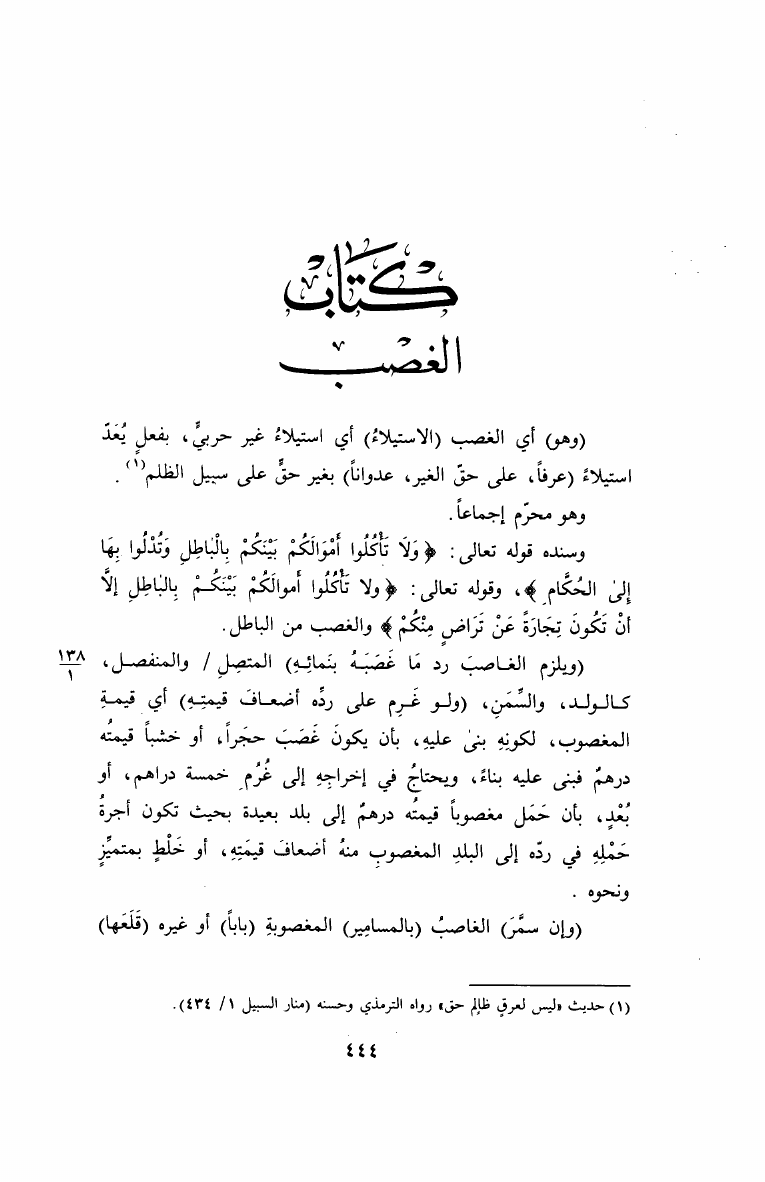 كتاب
الغصب
(وهو) أي الغصب (الاستيلاءُ) أي استيلاءُ غير حربيٍّ، بفعلٍ يُعَدّ
استيلاءً (عرفاً، على حقّ الغير، عدواناً) بغير حقٍّ على سبيل الظلم(١).
وهو محرّم إجماعاً.
وسنده قوله تعالى: ﴿وَلَا تَأْكُلُوا أَمْوَالَكُمْ بَيْنَكُمْ بِالْبَاطِلِ وَتُدْلُوا بِهَا
إِلىٰ الحُكَّامِ﴾، وقوله تعالى: ﴿ولا تَأْكُلُوا أموالَكُمْ بَيْنَكُمْ بِالبَاطِلِ إلَّا
أنْ تَكُونَ تِجَارَةً عَنْ تَرَاضٍ مِنْكُمْ﴾ والغصب من الباطل.
(ويلزم الغاصبَ رد مَا غَصَبَهُ بنَمائِهِ) المتصِلِ / والمنفصل،
١٣٨
١
كالولد، والسِّمَنِ، (ولو غَرِم على ردِّه أضعافَ قيمتِهِ) أي قيمةِ
المغصوب، لكونِهِ بنىٰ عليهِ، بأن يكونَ غَصَبَ حجَراً، أو خشباً قيمتُه
درهمٌ فبنى عليه بناءً، ويحتاجُ في إخراجِهِ إلى غُرْمِ خمسة دراهم، أو
بُعْدٍ، بأن حَمَل مغصوباً قيمتُه درهمٌ إلى بلد بعيدة بحيث تكون أجرةُ
حَمْلِهِ في ردّه إلى البلدِ المغصوبِ منهُ أضعافَ قيمَتِهِ، أو خَلْطٍ بمتميِّزٍ
ونحوه.
(وإن سمَّرَ) الغاصبُ (بالمسامِيرِ) المغصوبةِ (باباً) أو غيره (قَلَعَها)
(١) حديث «ليس لعرقٍ ظالِمٍ حق» رواه الترمذي وحسنه (منار السبيل ١/ ٤٣٤).
٤٤٤